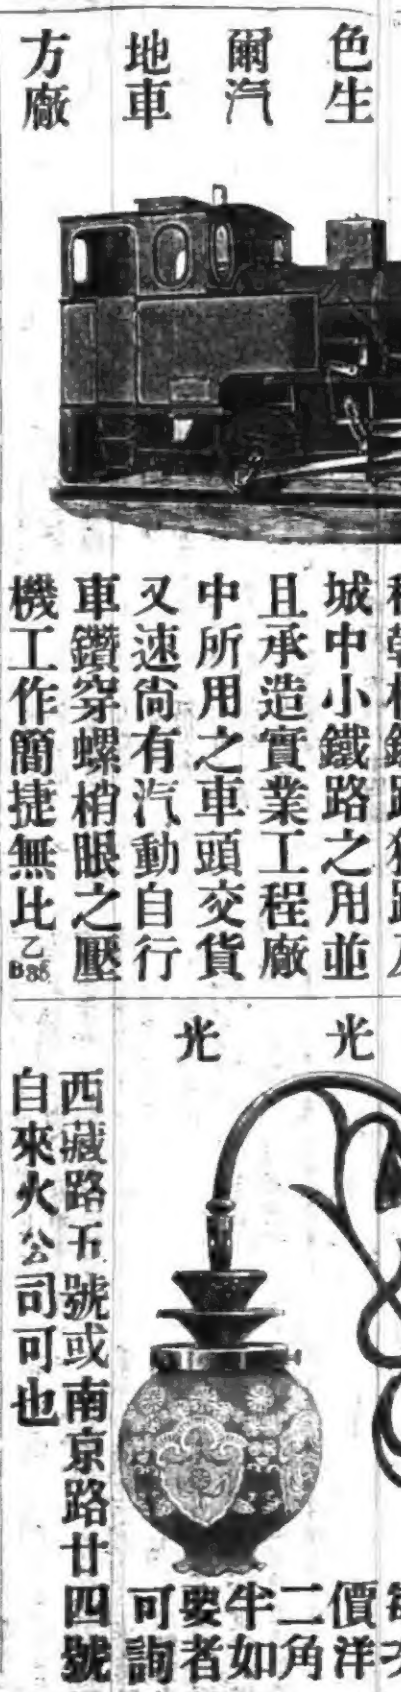 色生
爾汽
地車
方廠
城中小鐵路之用並
且承造實業工程廠
中所用之車頭交貨
又速尙有汽動自行
車鑽穿螺梢眼之壓
機工作簡捷無比 乙
光
光
價洋
二角
半如
要者
可詢
西藏路五號或南京路廿四號
自來火公司可也